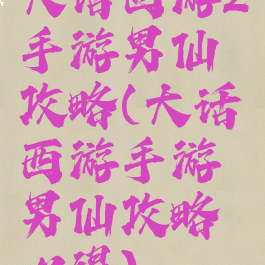 大话西游2
手游男仙
攻略(大话
西游手游
男仙攻略